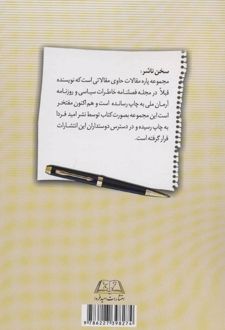 سخن ناشر:
مجموعه پاره مقالات حاوی مقالاتی است که نویسنده
قبلاً در مجله فصلنامه خاطرات سیاسی و روزنامه
آرمان ملی به چاپ رسانده است و هم‌اکنون مفتخر
است این مجموعه بصورت کتاب توسط نشر امید فردا
به چاپ رسیده و در دسترس دوستداران این انتشارات
قرار گرفته است.
انتشارات امید فردا
9 786227 398274